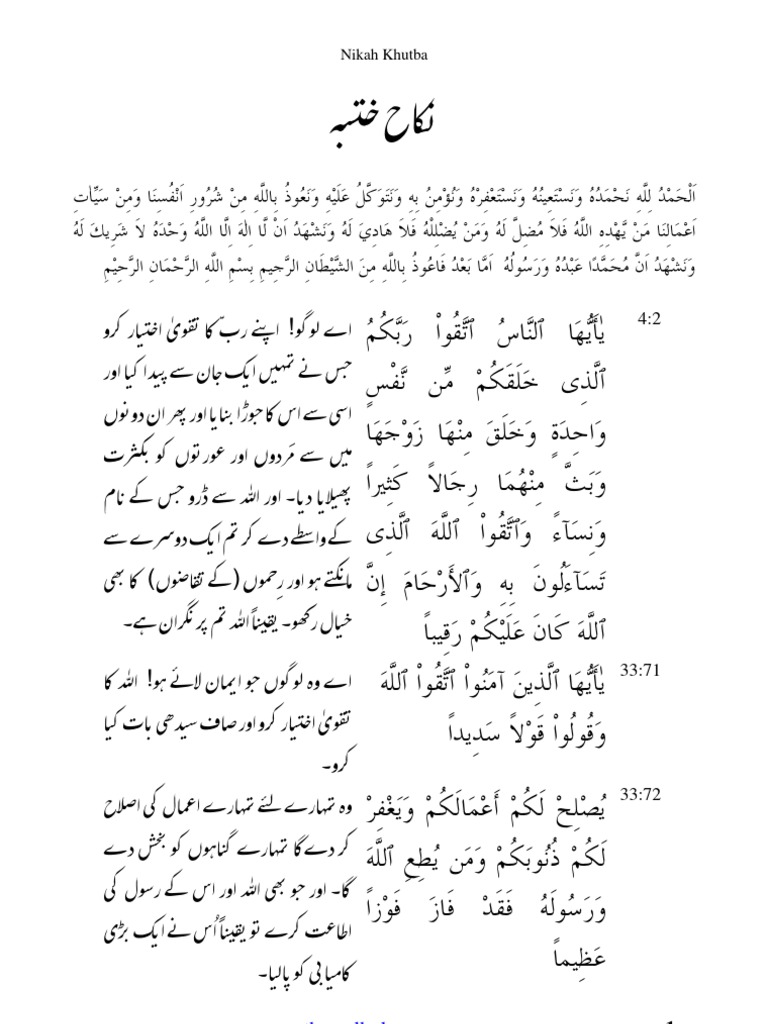 Nikah Khutba
نکاح ختبہ
اَلْحَمْدُ لِلَّهِ نَحْمَدُهُ وَنَسْتَعِينُهُ وَنَسْتَغْفِرُهُ وَنُؤْمِنُ بِهِ وَنَتَوَكَّلُ عَلَيْهِ وَنَعُوذُ بِاللَّهِ مِنْ شُرُورِ اَنْفُسِنَا وَمِنْ سَيِّاٰتِ
اَعْمَالِنَا مَنْ يَّهْدِهِ اللَّهُ فَلاَ مُضِلَّ لَهُ وَمَنْ يُضْلِلْهُ فَلاَ هَادِيَ لَهُ وَنَشْهَدُ اَنْ لَّا اِلٰهَ اِلَّا اللَّهُ وَحْدَهُ لاَ شَرِيكَ لَهُ
وَنَشْهَدُ اَنَّ مُحَمَّدًا عَبْدُهُ وَرَسُولُهُ اَمَّا بَعْدُ فَاعُوذُ بِاللَّهِ مِنَ الشَّيْطَانِ الرَّجِيمِ بِسْمِ اللَّهِ الرَّحْمَانِ الرَّحِيْمِ
4:2
يٰأَيُّهَا ٱلنَّاسُ ٱتَّقُواْ رَبَّكُمُ
ٱلَّذِى خَلَقَكُمْ مِّن نَّفْسٍ
وَاحِدَةٍ وَخَلَقَ مِنْهَا زَوْجَهَا
وَبَثَّ مِنْهُمَا رِجَالاً كَثِيراً
وَنِسَآءً وَٱتَّقُواْ ٱللَّهَ ٱلَّذِى
تَسَآءَلُونَ بِهِ وَٱلأَرْحَامَ إِنَّ
ٱللَّهَ كَانَ عَلَيْكُمْ رَقِيباً
اے لوگو! اپنے ربّ کا تقویٰ اختیار کرو
جس نے تمہیں ایک جان سے پیدا کیا اور
اسی سے اس کا جوڑا بنایا اور پھر ان دونوں
میں سے مَردوں اور عورتوں کو بکثرت
پھیلا یا دیا۔ اور اللہ سے ڈرو جس کے نام
کے واسطے دے کر تم ایک دوسرے سے
مانگتے ہو اور رِحموں (کے تقاضوں) کا بھی
خیال رکھو۔ یقیناً اللہ تم پر نگران ہے۔
33:71
يٰأَيُّهَا ٱلَّذِينَ آمَنُواْ ٱتَّقُواْ ٱللَّهَ
وَقُولُواْ قَوْلاً سَدِيداً
اے وہ لوگوں جو ایمان لائے ہو! اللہ کا
تقویٰ اختیار کرو اور صاف سیدھی بات کیا
کرو۔
33:72
يُصْلِحْ لَكُمْ أَعْمَالَكُمْ وَيَغْفِرْ
لَكُمْ ذُنُوبَكُمْ وَمَن يُطِعِ ٱللَّهَ
وَرَسُولَهُ فَقَدْ فَازَ فَوْزاً
عَظِيماً
وہ تمہارے لئے تمہارے اعمال کی اصلاح
کر دے گا تمہارے گناہوں کو بخش دے
گا۔ اور جو بھی اللہ اور اس کے رسول کی
اطاعت کرے تو یقیناً اُس نے ایک بڑی
کامیابی کو پالیا۔